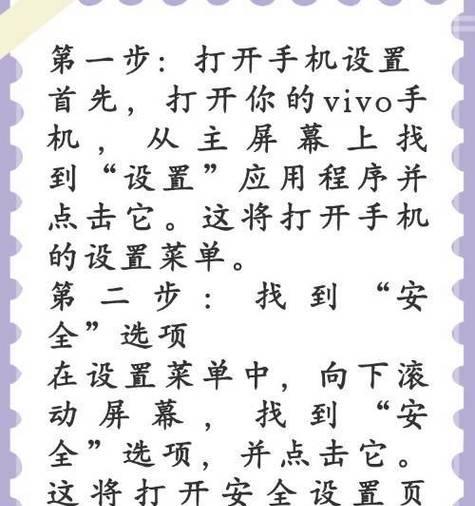 第一步：打开手机设置
首先，打开你的vivo手
机，从主屏幕上找
到“设置”应用程序并
点击它。这将打开手机
的设置菜单。
第二步：找到“安
全”选项
在设置菜单中，向下滚
动屏幕，找到“安
全”选项，并点击它。
这将打开安全设置页